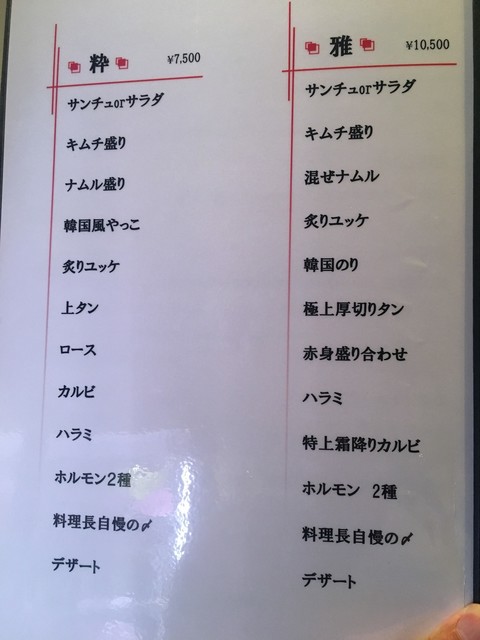 粋 ¥7,500
サンチュorサラダ
キムチ盛り
ナムル盛り
韓国風やっこ
炙りユッケ
上タン
ロース
カルビ
ハラミ
ホルモン2種
料理長自慢の〆
デザート
雅 ¥10,500
サンチュorサラダ
キムチ盛り
混ぜナムル
炙りユッケ
韓国のり
極上厚切りタン
赤身盛り合わせ
ハラミ
特上霜降りカルビ
ホルモン 2種
料理長自慢の〆
デザート